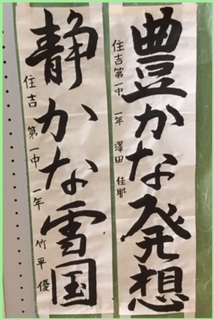 豊かな発想
住吉第一中 一年 澤田 佳耶
静かな雪国
住吉 第一中 一年 竹平 優